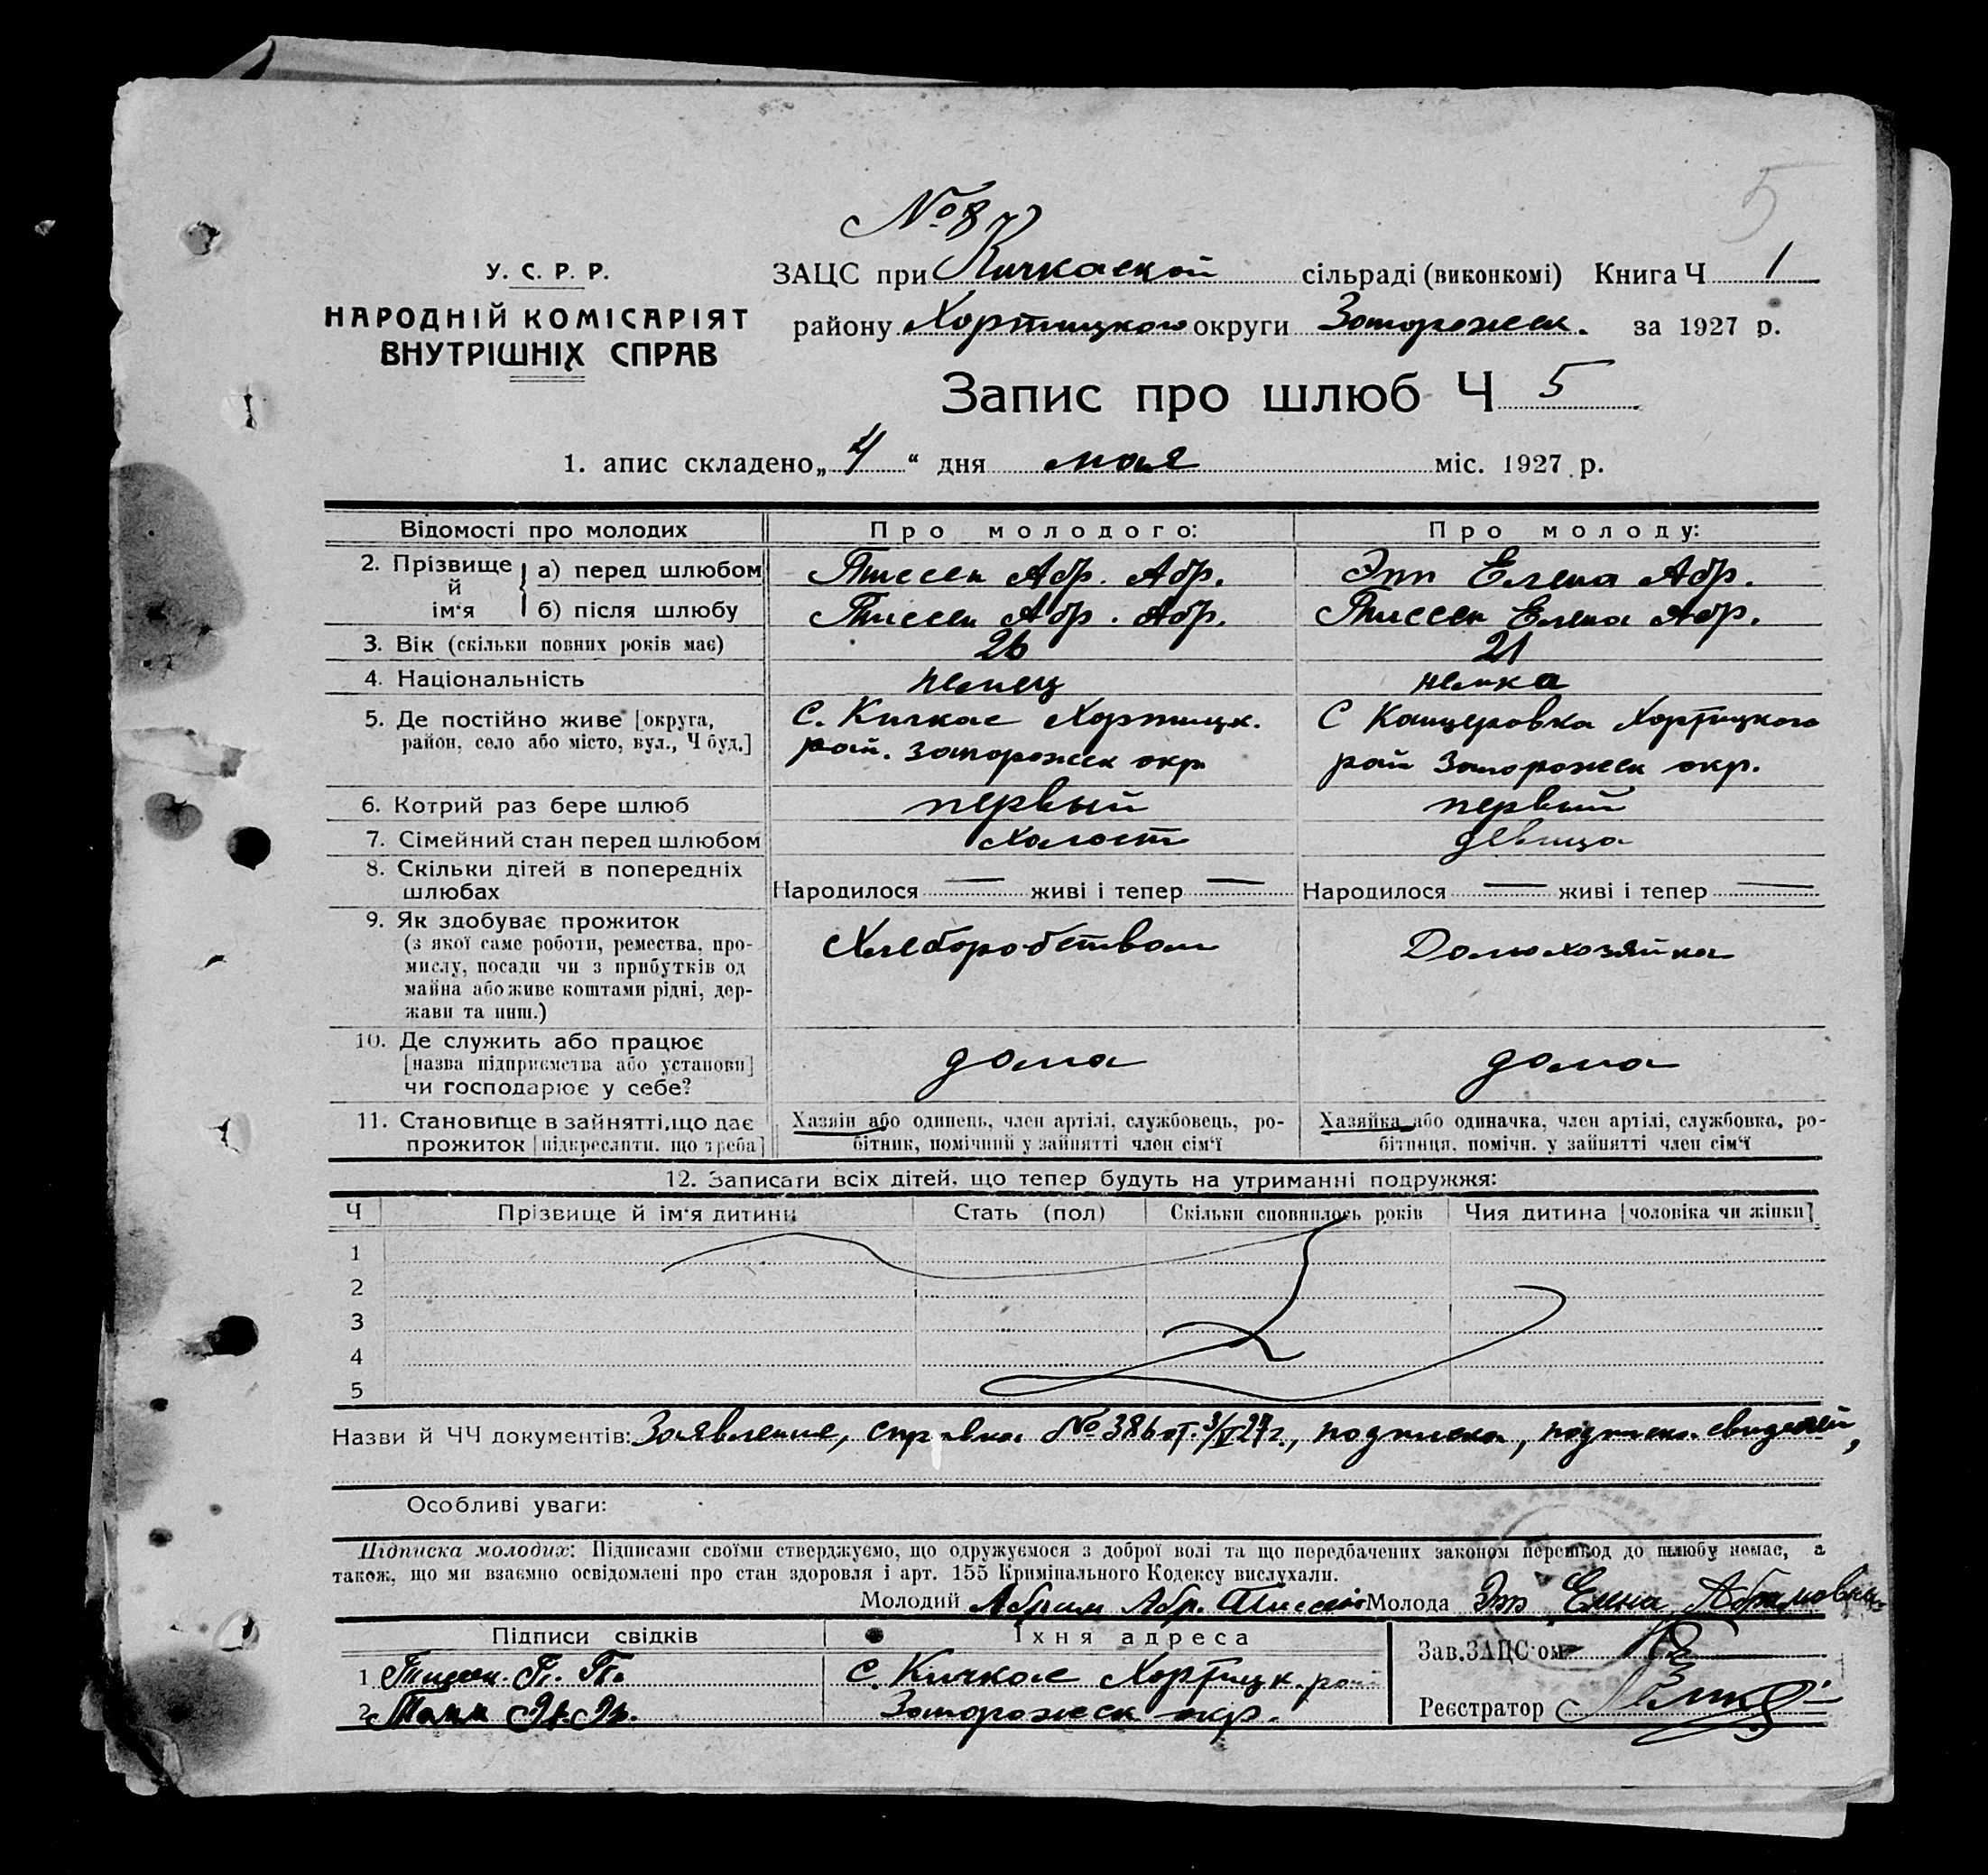 5
№ 87
У. С. Р. Р.
НАРОДНІЙ КОМІСАРІЯТ
ВНУТРІШНІХ СПРАВ
ЗАЦС при Кичкаской сільраді (виконкомі) Книга Ч 1
району Хортицкого округи Запорожск. за 1927 р.
Запис про шлюб Ч 5
1. апис складено „ 4 “ дня мая міс. 1927 р.
Відомості про молодих Про молодого: Про молоду:
2. Прізвище й ім‘я а) перед шлюбом Тиссен Абр. Абр. Эпп Елена Абр.
б) після шлюбу Тиссен Абр. Абр. Тиссен Елена Абр.
3. Вік (скільки повних років має) 26 21
4. Національність немец немка
5. Де постійно живе [округа, с. Кичкас Хортицк. С Канцеровка Хортицкого
район, село або місто, вул., Ч буд.] рай. Запорожск окр. рай Запорожск окр.
6. Котрий раз бере шлюб первый первый
7. Сімейний стан перед шлюбом холост девица
8. Скільки дітей в попередніх
шлюбах Народилося — живі і тепер — Народилося — живі і тепер —
9. Як здобуває прожиток
(з якої саме роботи, ремества, про- Хлеборобством Домохозяйка
мислу, посади чи з прибутків од
майна або живе коштами рідні, дер-
жави та инш.)
10. Де служить або працює
[назва підприємства або установи] дома дома
чи господарює у себе?
11. Становище в зайнятті, що дає Хазяїн або одинець, член артілі, службовець, ро- Хазяйка або одиначка, член артілі, службовка, ро-
прожиток [підкреслити, що треба] бітник, помічний у зайнятті член сім‘ї бітниця, помічн. у зайнятті член сім‘ї
12. Записати всіх дітей, що тепер будуть на утриманні подружжя:
Ч Прізвище й ім‘я дитини Стать (пол) Скільки сповнилось років Чия дитина [чоловіка чи жінки]
1
2
3
4
5
Назви й ЧЧ документів: Заявление, справка № 386 от 3/V 27 г., подписка, подписка свидетелей,
Особливі уваги:
Підписка молодих: Підписами своїми стверджуємо, що одружуємося з доброї волі та що передбачених законом перешкод до шлюбу немає, а
також, що ми взаємно освідомлені про стан здоровля і арт. 155 Кримінального Кодексу вислухали.
Молодий Абрам Абр. Тиссен Молода Эпп Елена Абрамовна
Підписи свідків Їхня адреса Зав. ЗАЦС‘ом
1 Тиссен с. Кичкас Хортицк. рай
2 Запорожск окр. Реєстратор